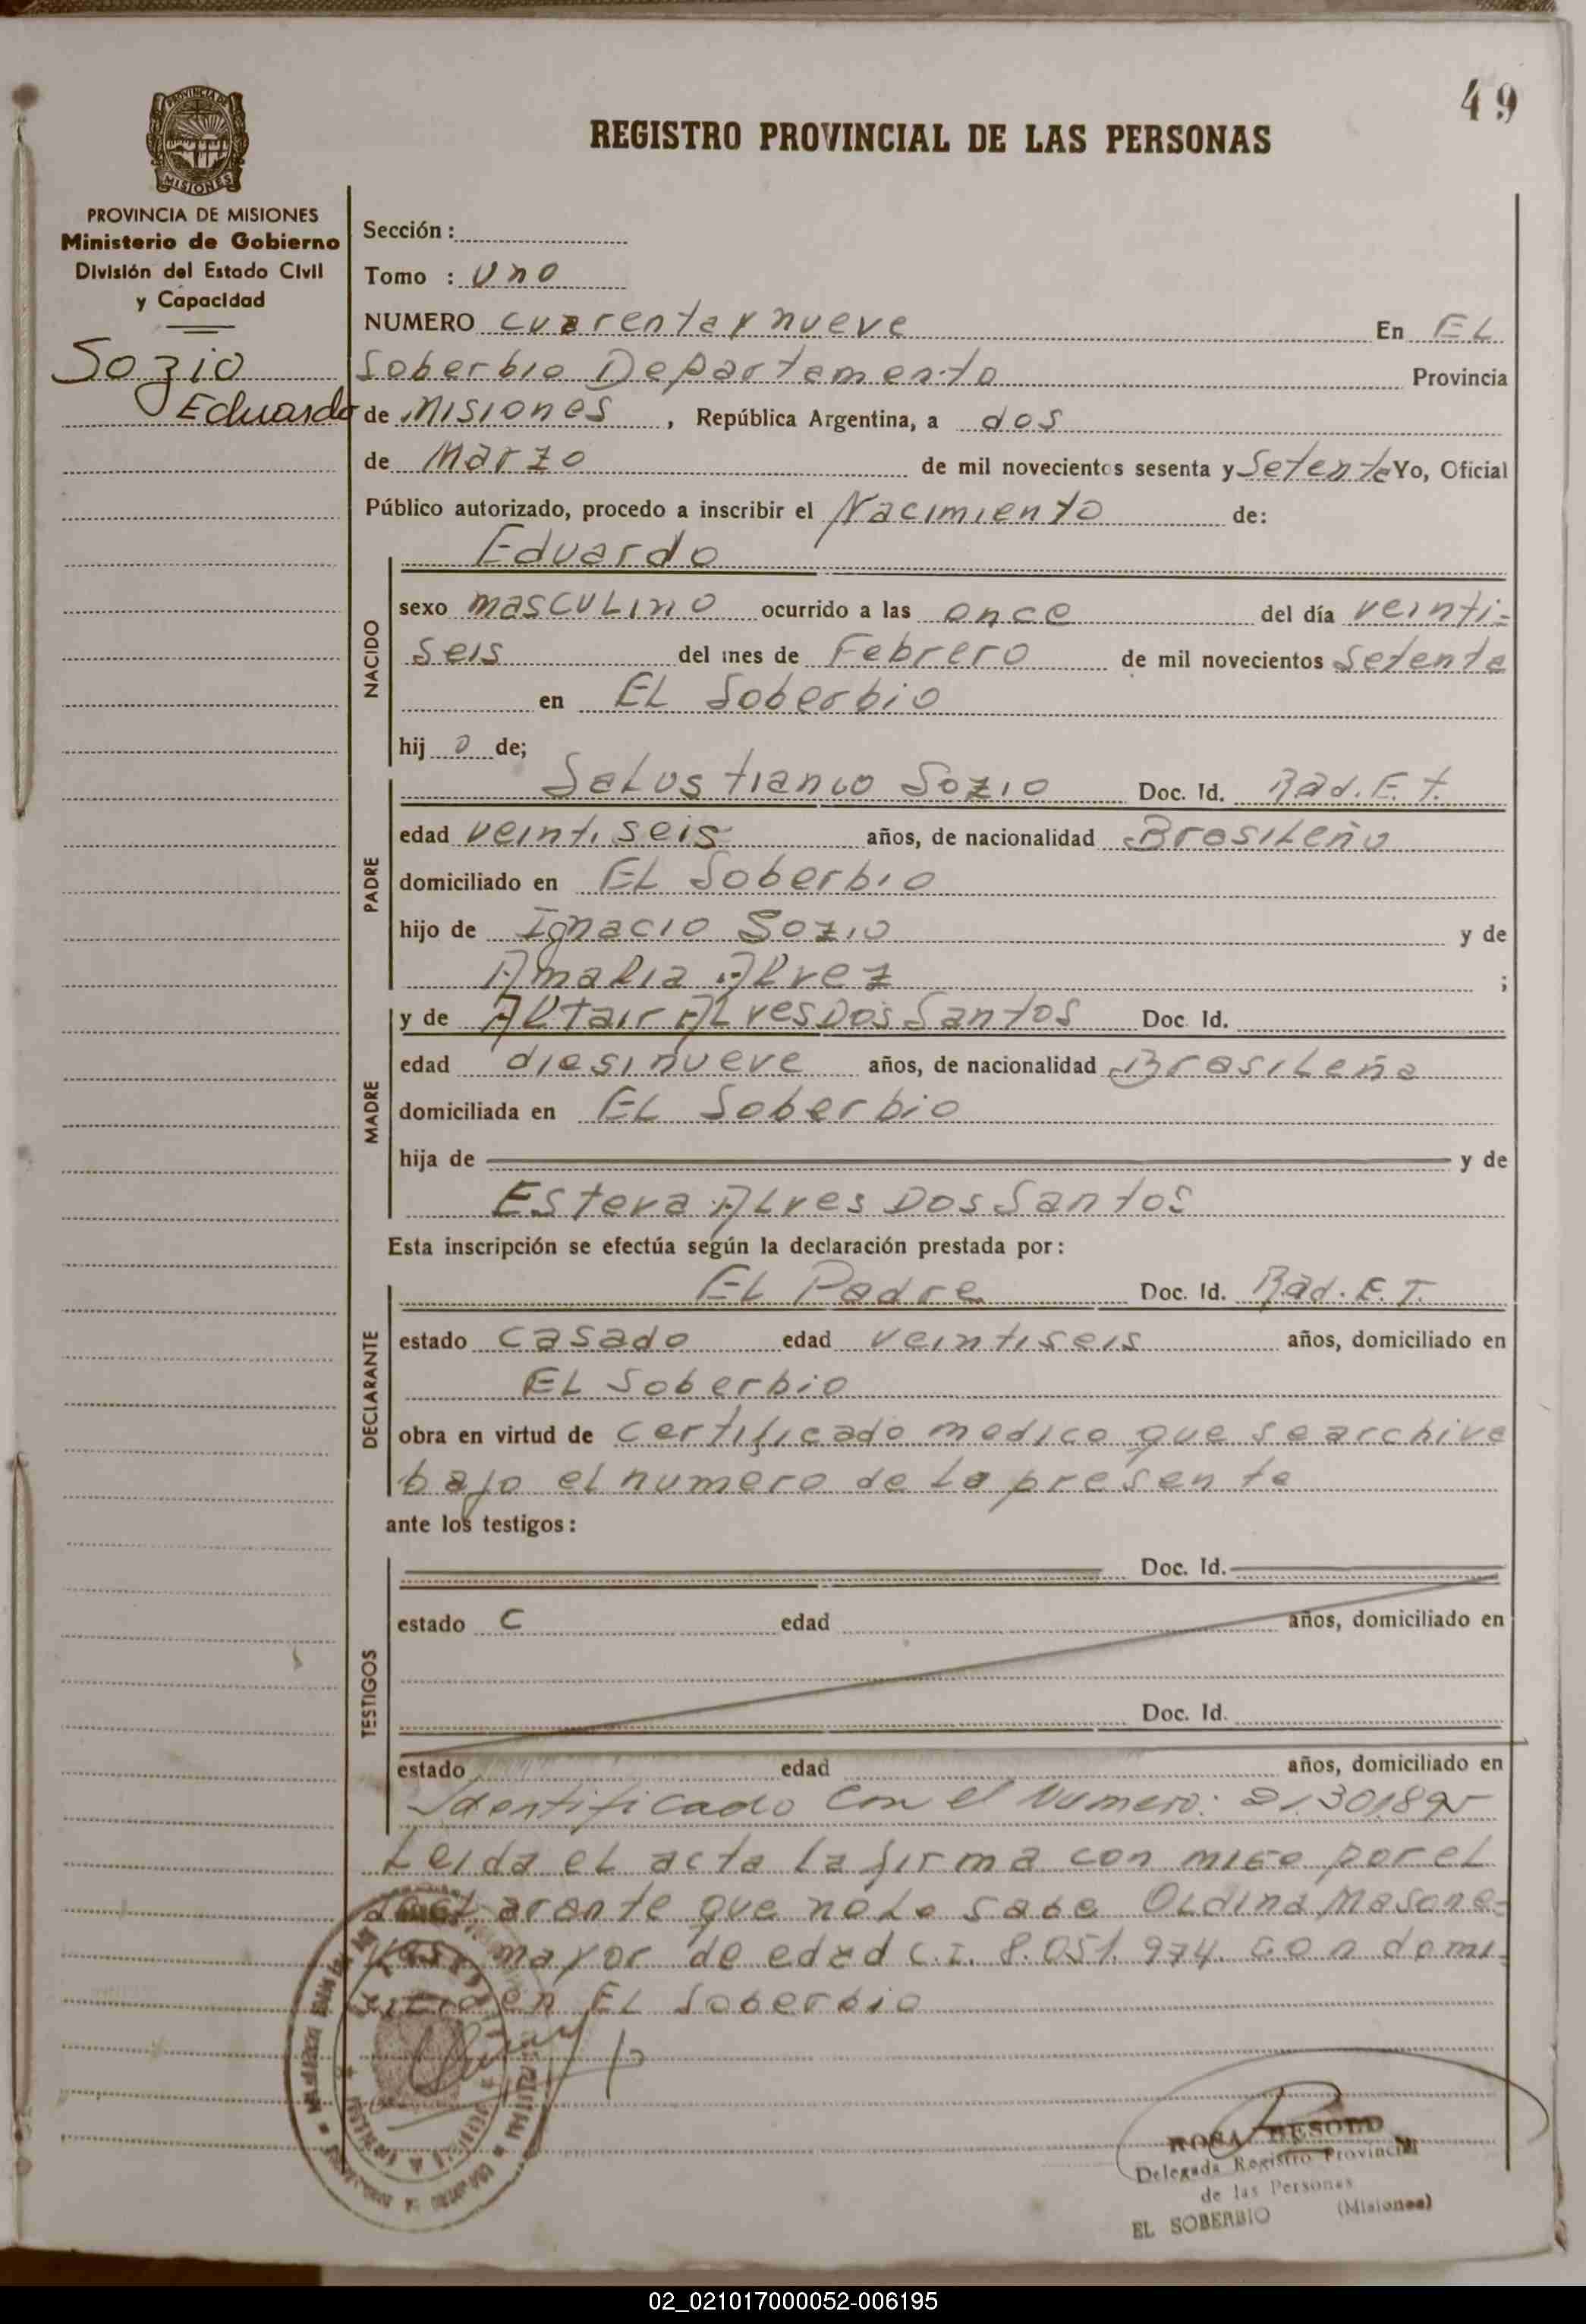 49
REGISTRO PROVINCIAL DE LAS PERSONAS
PROVINCIA DE
MISIONES
PROVINCIA DE MISIONES
Ministerio de Gobierno
División del Estado Civil
y Capacidad
Sozio
Eduardo
Sección :
Tomo : uno
NUMERO cuarenta y nueve En EL
Soberbio Departamento Provincia
de Misiones , República Argentina, a dos
de Marzo de mil novecientos sesenta y Setenta Yo, Oficial
Público autorizado, procedo a inscribir el Nacimiento de:
NACIDO
Eduardo
sexo masculino ocurrido a las once del día veinti-
seis del mes de Febrero de mil novecientos Setenta
en EL Soberbio
hij o de;
PADRE
Salustiano Sozio Doc. Id. Rad. E. T.
edad veintiseis años, de nacionalidad Brasileño
domiciliado en EL Soberbio
hijo de Ignacio Sozio y de
Amalia Alvez ;
MADRE
y de Altair Alves Dos Santos Doc. Id.
edad diesinueve años, de nacionalidad Brasileña
domiciliada en EL Soberbio
hija de y de
Esteva Alves Dos Santos
Esta inscripción se efectúa según la declaración prestada por:
DECLARANTE
EL Padre Doc. Id. Rad. E. T.
estado casado edad veintiseis años, domiciliado en
EL Soberbio
obra en virtud de certificado medico que se archiva
bajo el numero de la presente
ante los testigos:
TESTIGOS
Doc. Id.
estado C edad años, domiciliado en
Doc. Id.
estado edad años, domiciliado en
Identificado con el Numero:
Leida el acta la firma con migo por el
que no lo sabe Oldina
mayor de edad C.I. 8.051.974 con domi-
en EL Soberbio
ROSA BESOLD
Delegada Registro Provincial
de las Personas
EL SOBERBIO (Misiones)
02_021017000052-006195